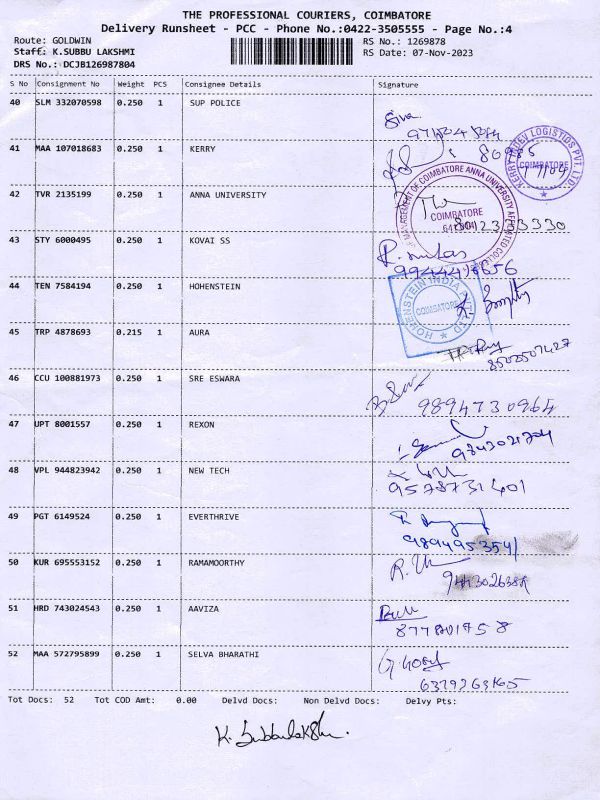 THE PROFESSIONAL COURIERS, COIMBATORE
Delivery Runsheet - PCC - Phone No.:0422-3505555 - Page No.:4
Route: GOLDWIN RS No.: 1269878
Staff: K.SUBBU LAKSHMI RS Date: 07-Nov-2023
DRS No.: DCJB126987804
S No Consignment No Weight PCS Consignee Details Signature
40 SLM 332070598 0.250 1 SUP POLICE
Siva.
41 MAA 107018683 0.250 1 KERRY
KERRY INDEV LOGISTICS PVT. LTD.
COIMBATORE
42 TVR 2135199 0.250 1 ANNA UNIVERSITY
MANAGEMENT OF COIMBATORE ANNA UNIVERSITY AFFILIATED COLLEGES
COIMBATORE
43 STY 6000495 0.250 1 KOVAI SS
44 TEN 7584194 0.250 1 HOHENSTEIN
HOHENSTEIN INDIA PVT LTD
COIMBATORE
45 TRP 4878693 0.215 1 AURA
46 CCU 100881973 0.250 1 SRE ESWARA
9894730964
47 UPT 8001557 0.250 1 REXON
48 VPL 944823942 0.250 1 NEW TECH
9578731401
49 PGT 6149524 0.250 1 EVERTHRIVE
9894953541
50 KUR 695553152 0.250 1 RAMAMOORTHY
51 HRD 743024543 0.250 1 AAVIZA
52 MAA 572795899 0.250 1 SELVA BHARATHI
Tot Docs: 52 Tot COD Amt: 0.00 Delvd Docs: Non Delvd Docs: Delvy Pts:
K. Subbulakshmi.